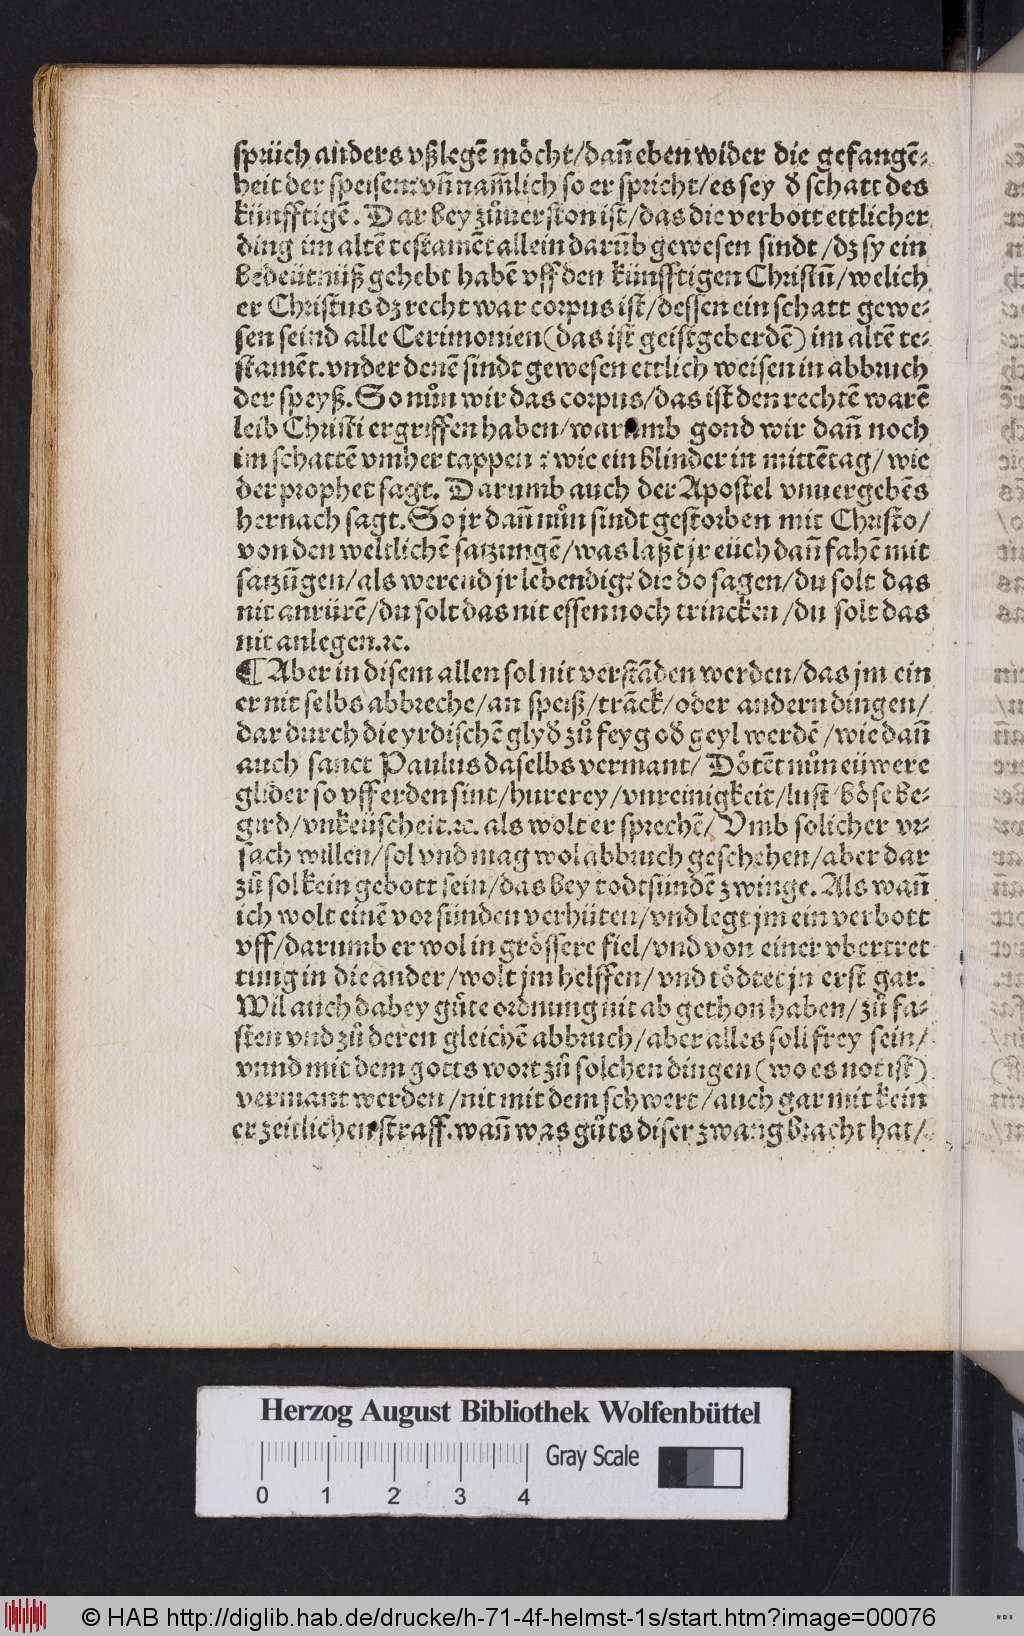 sprüch anders vßlegē möcht/dañ eben wider die gefangē-
heit der speisen: vñ nam̃lich so er spricht/es sey ð schatt des
künfftigē. Dar bey zůuerston ist/das die verbott ettlicher
ding im altē testamēt allein darūb gewesen sindt/dz sy ein
bedeütniß gehebt habē vff den künfftigen Christū/welich
er Christus dz recht war corpus ist/dessen ein schatt gewe-
sen seind alle Cerimonien(das ist geistgeberdē) im altē te-
stamēt. vnder denē sindt gewesen ettlich weisen in abbruch
der speyß. So nůn wir das corpus/das ist den rechtē warē
leib Christi ergriffen haben/warumb gond wir dañ noch
im schattē vmher tappen: wie ein blinder in mittētag/wie
der prophet sagt. Darumb auch der Apostel vnuergebēs
hernach sagt. So jr dañ nůn sindt gestorben mit Christo/
von den weltlichē satzungē/was laßt jr eüch dañ fahē mit
satzūgen/als werend jr lebendig: die do sagen/du solt das
nit anrürē/du solt das nit essen noch trincken/du solt das
nit anlegen.⁊c.
¶ Aber in disem allen sol nit verstādē werden/das jm ein
er nit selbs abbreche/an speiß/trāck/oder andern dingen/
dar durch die yrdischē glyð zů feyg oð geyl werdē/wie dañ
auch sanct Paulus daselbs vermant/ Dötēt nůn eüwere
glider so vff erden sint/hurerey/vnreinigkeit/lust/böse be-
gird/vnkeüscheit.⁊c. als wolt er sprechē/ Vmb solicher vr-
sach willen/sol vnd mag wol abbruch geschehen/aber dar
zů sol kein gebott sein/das bey todtsündē zwinge. Als wañ
ich wolt einē vor sünden verhüten/vnd legt jm ein verbott
vff/darumb er wol in grössere fiel/vnd von einer vbertret
tung in die ander/wolt jm helffen/vnd tödtet jn erst gar.
Wil auch dabey gůte ordnung nit ab gethon haben/zů fa-
sten vnd zů deren gleichē abbruch/aber alles soll frey sein/
vnnd mit dem gotts wort zů solchen dingen (wo es not ist)
vermant werden/nit mit dem schwert/auch gar mit kein
er zeitlichen straff. wañ was gůts diser zwang bracht hat/
Herzog August Bibliothek Wolfenbüttel
Gray Scale
0 1 2 3 4
© HAB http://diglib.hab.de/drucke/h-71-4f-helmst-1s/start.htm?image=00076